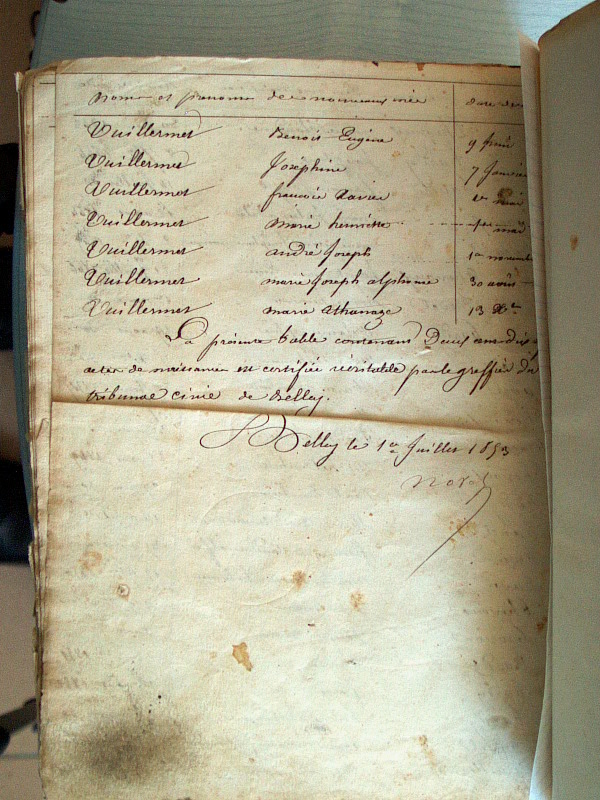 Noms et prenoms des nouveaux nés Date des
Vuillermet Benoit Eugène 9 Juin
Vuillermet Joséphine 7 Janvier
Vuillermet francois Xavier 1er mai
Vuillermet Marie henriette 1er mai
Vuillermet andré Joseph 1er novembre
Vuillermet marie Joseph alphonse 30 août
Vuillermet marie athanaze 13 Xbre
La présente table contenant Deux cent dix
actes de naissances est certifiée véritable par le greffier du
tribunal civil de Belley.
Belley le 1er Juillet 1853